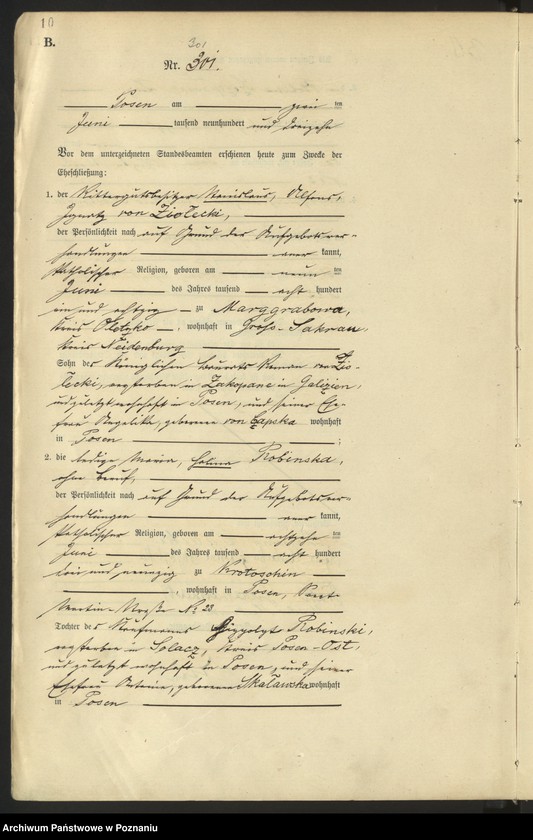 10
B.
301
Nr. 301.
Posen am zwei ten
Juni tausend neunhundert und dreizehn
Vor dem unterzeichneten Standesbeamten erschienen heute zum Zwecke der
Eheschließung:
1. der Rittergutsbesitzer Stanislaus, Alfons,
Ignatz von Ziołecki,
der Persönlichkeit nach auf Grund der Aufgebotsver-
handlungen aner kannt,
katholischer Religion, geboren am neun ten
Juni des Jahres tausend acht hundert
ein und achtzig zu Marggrabowa,
Kreis Oletzko, wohnhaft in Gross-Sakrau,
Kreis Neidenburg
Sohn des Königlichen Baurats Roman von Zio-
łecki, verstorben in Zakopane in Galizien,
und zuletzt wohnhaft in Posen, und seiner Ehe-
frau Angelika, geborene von Łapska wohnhaft
in Posen ;
2. die ledige Maria, Halina Robinska,
ohne Beruf,
der Persönlichkeit nach auf Grund der Aufgebotsver-
handlungen aner kannt,
katholischer Religion, geboren am achtzehn ten
Juni des Jahres tausend acht hundert
drei und neunzig zu Krotoschin
, wohnhaft in Posen, Sankt-
Martin-Straße No 23
Tochter des Kaufmanns Hippolyt Robinski,
verstorben in Solacz, Kreis Posen-Ost,
und zuletzt wohnhaft in Posen, und seiner
Ehefrau Antonie, geborenen Skaławska wohnhaft
in Posen
Archiwum Państwowe w Poznaniu